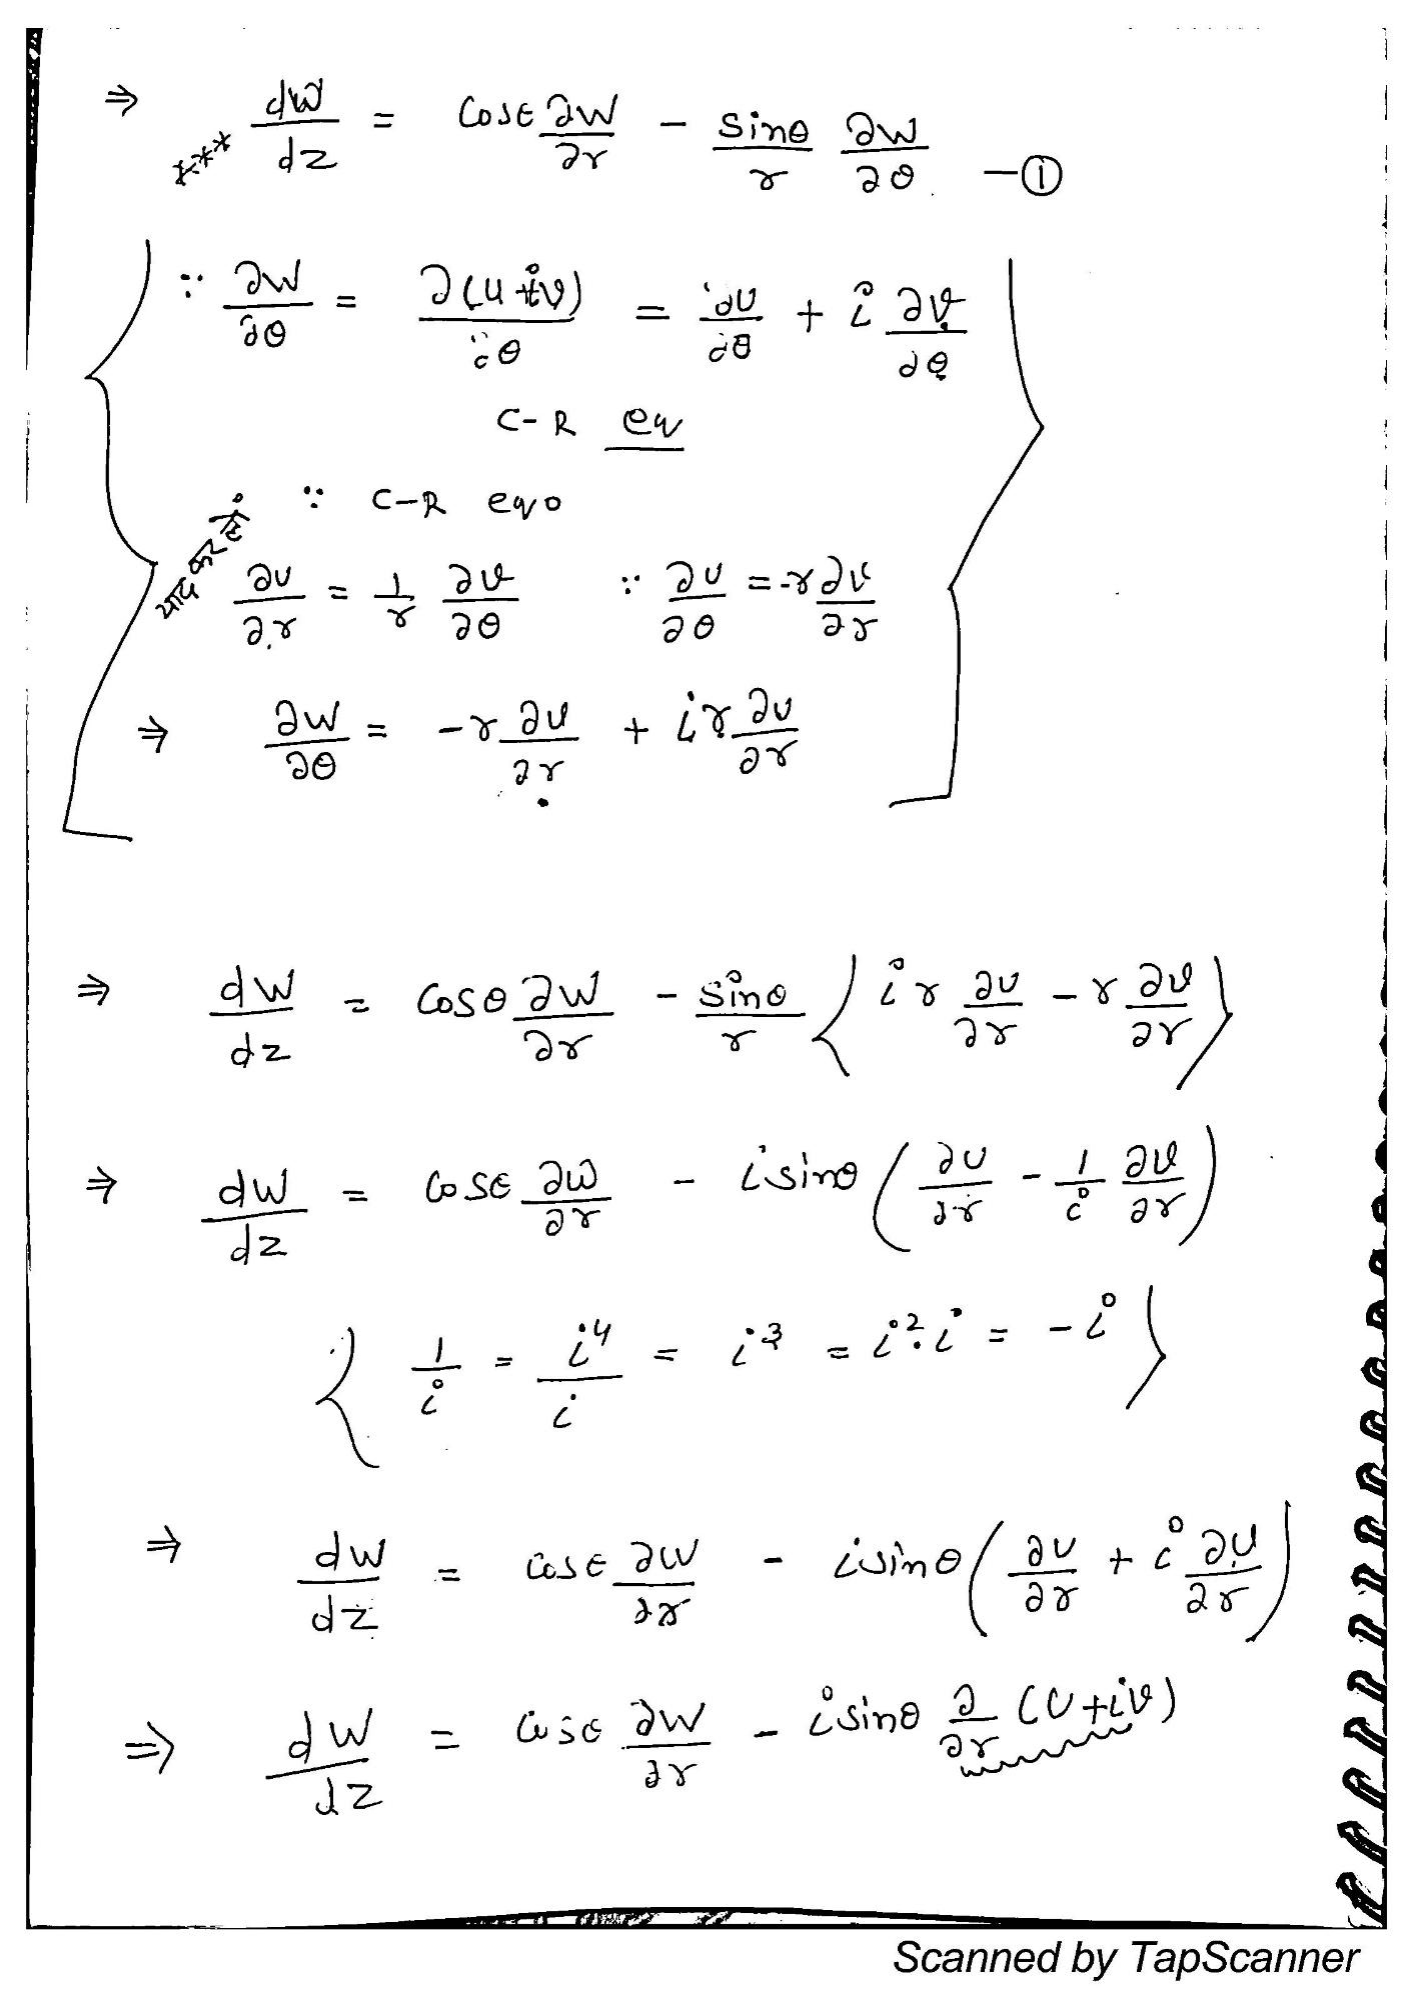 ⇒ dW/dz = Cosθ ∂W/∂r - Sinθ/r ∂W/∂θ —①
***
∵ ∂W/∂θ = ∂(u+iv)/∂θ = ∂u/∂θ + i ∂v/∂θ
C-R eq
∵ C-R eqo
याद कर लें
∂u/∂r = 1/r ∂v/∂θ ∵ ∂u/∂θ = -r ∂v/∂r
⇒ ∂W/∂θ = -r ∂v/∂r + ir ∂u/∂r
⇒ dW/dz = Cosθ ∂W/∂r - Sinθ/r { i r ∂u/∂r - r ∂v/∂r }
⇒ dW/dz = Cosθ ∂W/∂r - i sinθ ( ∂u/∂r - 1/i ∂v/∂r )
{ 1/i = i⁴/i = i³ = i².i = -i }
⇒ dW/dz = Cosθ ∂W/∂r - i sinθ ( ∂u/∂r + i ∂v/∂r )
⇒ dW/dz = Cosθ ∂W/∂r - i sinθ ∂/∂r (u+iv)
Scanned by TapScanner